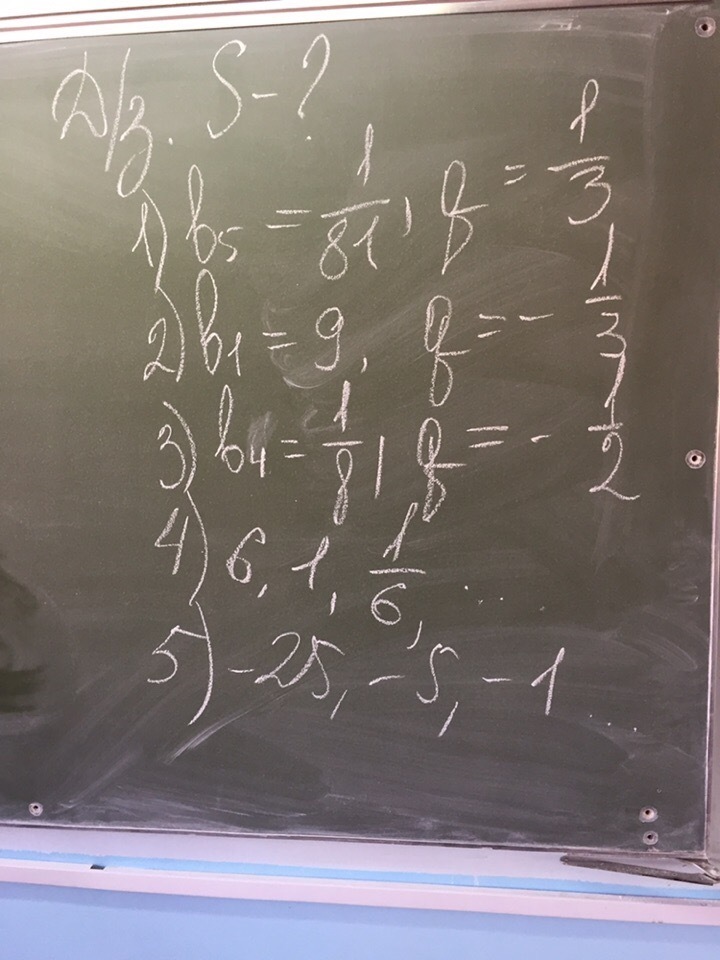 Д/з. S - ?
1) b₅ = 1/81, q = 1/3
2) b₁ = 9, q = - 1/3
3) b₄ = 1/8, q = - 1/2
4) 6, 1, 1/6, ...
5) -25, -5, -1 ....